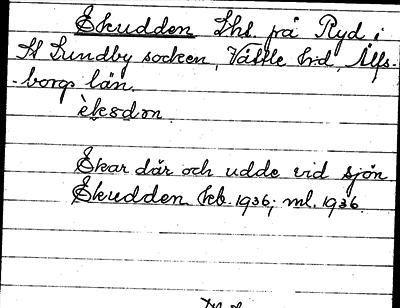 Ekudden Lht. på Ryd i
St Lundby socken, Vättle hd, Älfs-
borgs län.
èksdn.
Ekar där och udde vid sjön
Ekudden kb. 1936; ml. 1936.